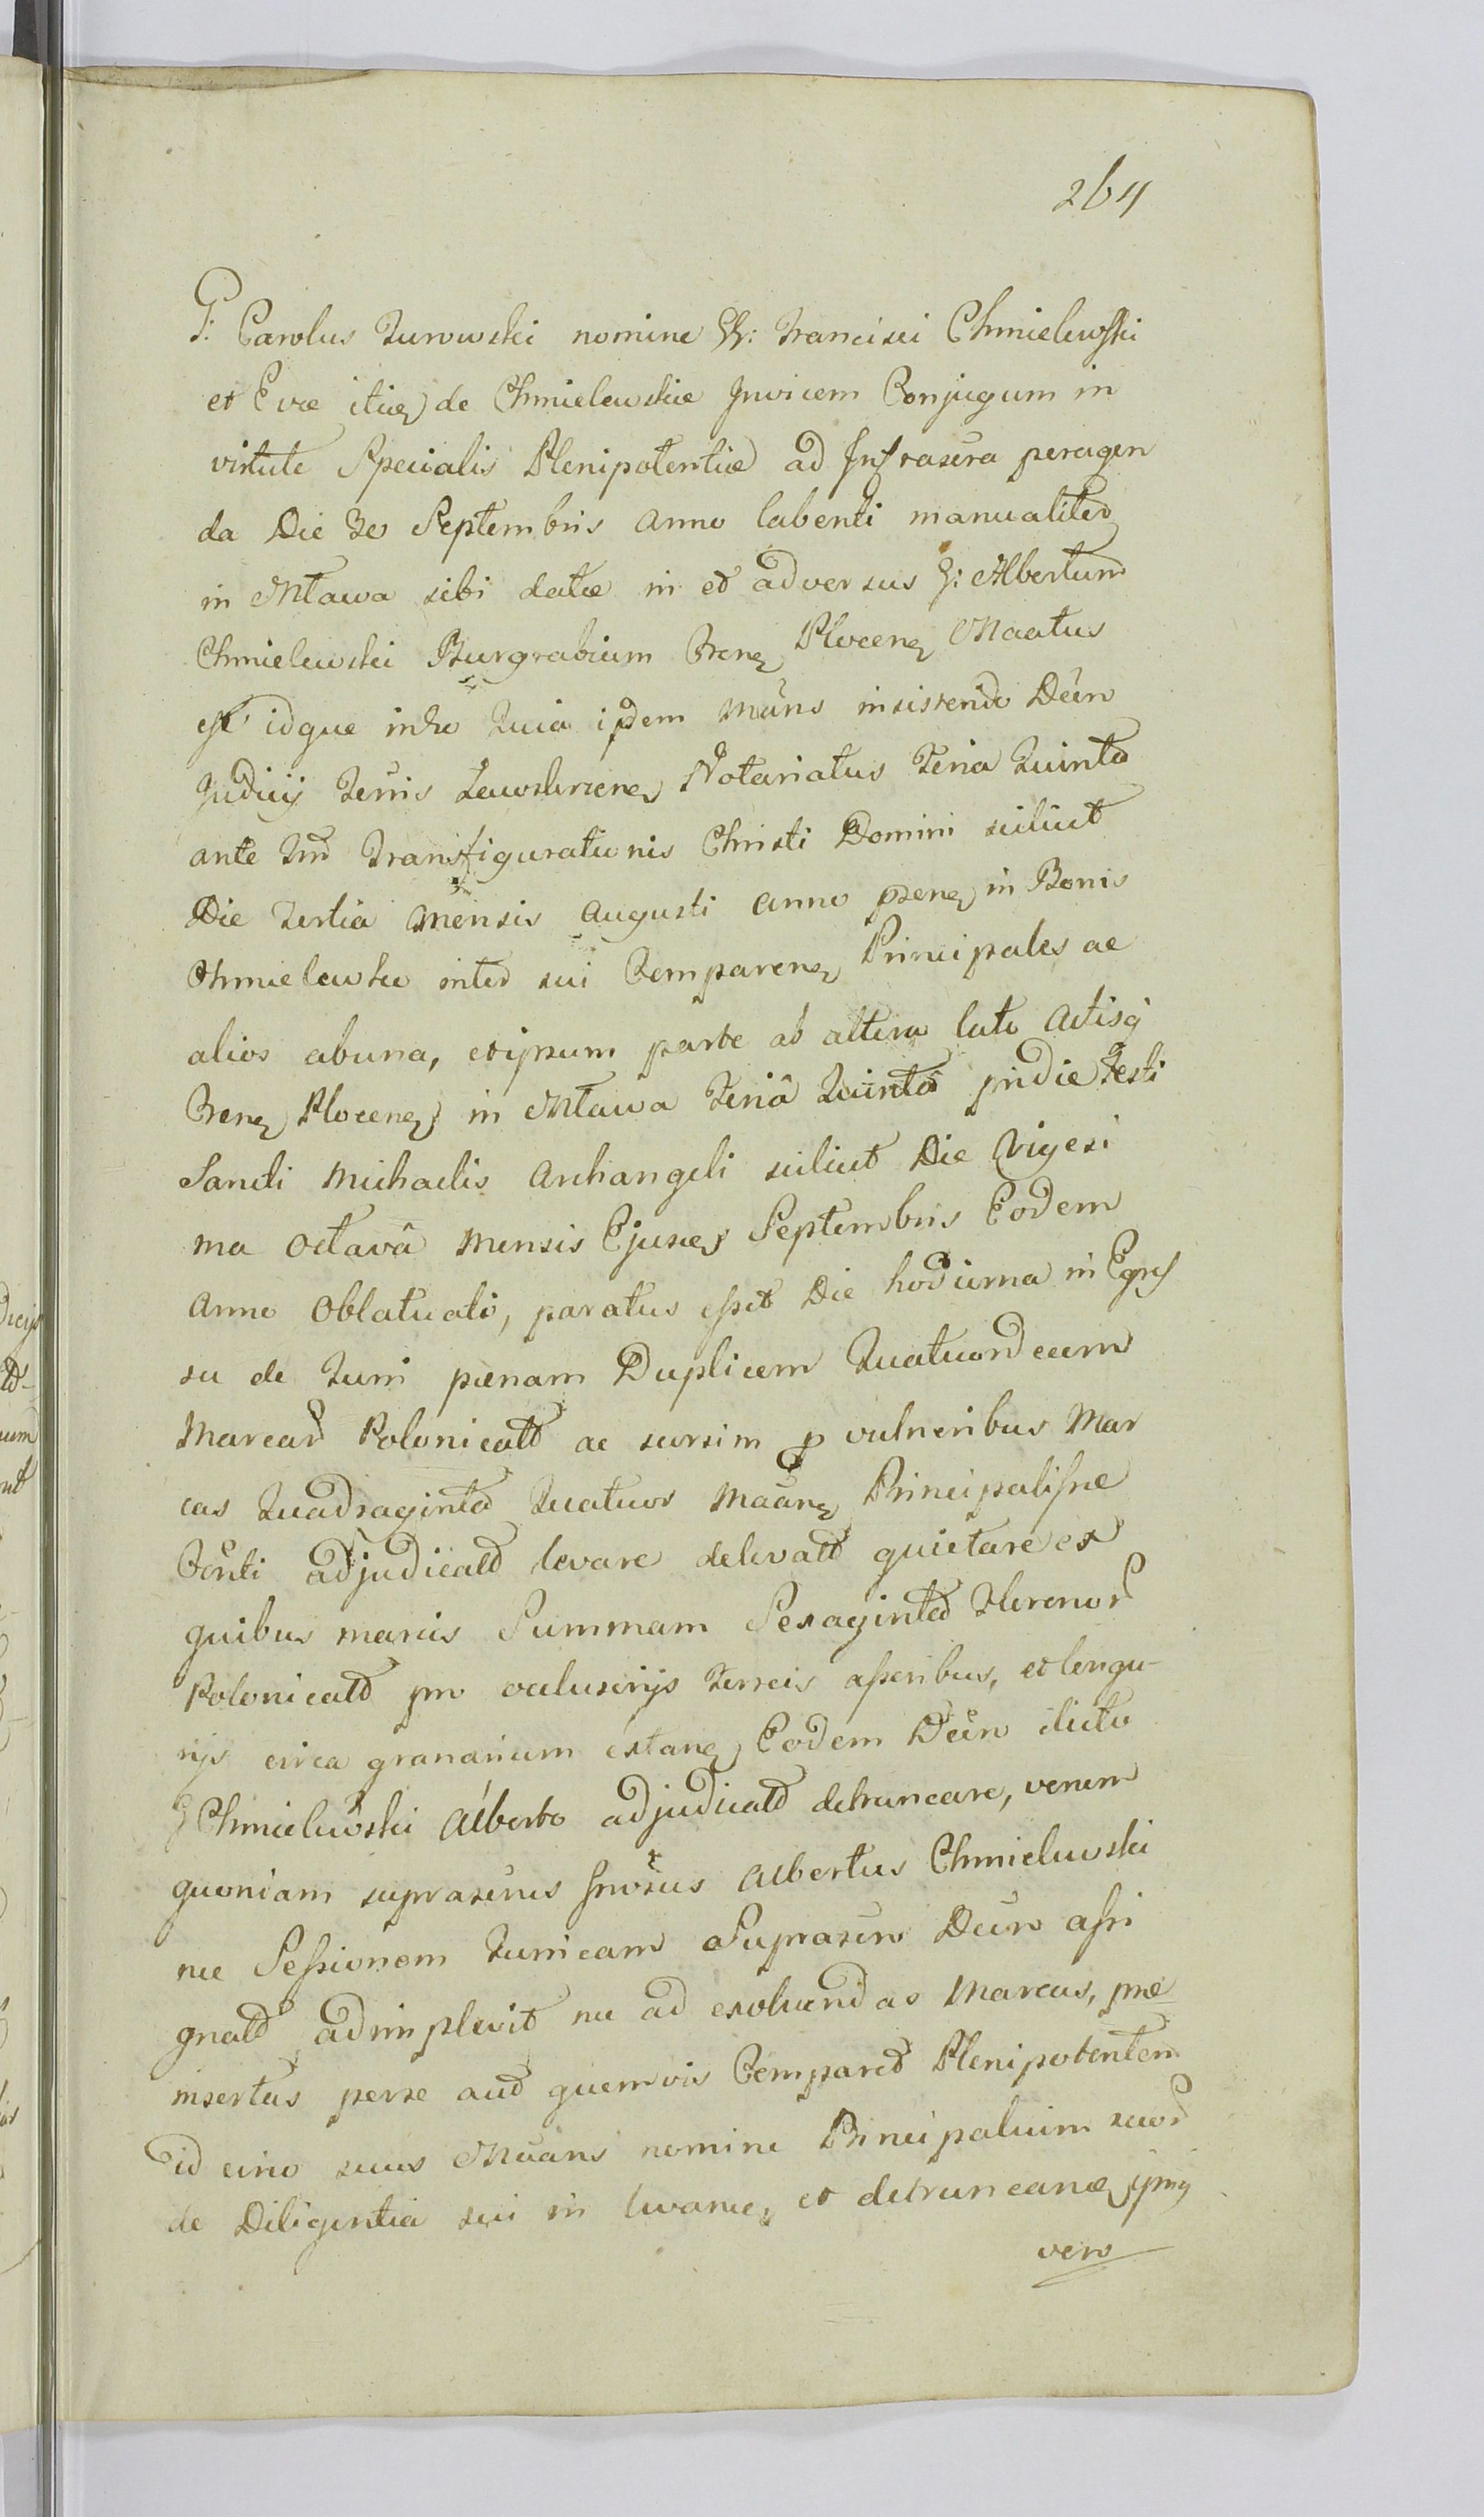 264
G: Carolus Turowski nomine GG: Francisci Chmielewski
et Evæ itid de Chmielewskie Invicem Conjugum in
virtute Specialis Plenipotentiæ ad Infrascra peragen
da Die 30 Septembris anno labenti manualiter
in Mława sibi datæ in et adversus G: Albertum
Chmielewski Burgrabium Plocen Maatus
est idque inde quia ipdem insistendo Decr̃o
Judicij Terris Notariatus Feria Quinta
ante Transfigurationis Christi Domini scilicet
Die tertia Mensis Augusti anno psen in Bonis
Chmielewko inter sui Comparen Principales ac
alios abuna, et ipsum parte ab altera lato Actisq
Plocen in Mława Feriâ Quinta pridie Festi
Sancti Michaelis Archangeli scilicet Die Vigesi
ma octavâ Mensis Ejusd Septembris Eodem
Anno Oblatuato, paratus esset Die hodierna in Egres
su de Turri pænam Duplicem Quatuordecim
Marcar Polonicalt ac seorsim p vulneribus Mar
cas Quadraginta Quatuor Principalisne
adjudicalt levare delevalt quietare ex
quibus marcis Summam Sexaginta florenor
Polonicalt pro ocluserijs ferreis asseribus, et longu-
rijs circa granarium extan Eodem Decr̃o dicto
G Chmielewski Alberto adjudicalt detruncare, verum
quoniam suprascrius Albertus Chmielewski
nec Sessionem Turricam Suprascr̃o Decr̃o assi
gnalt adimplevit nec ad exolvendas Marcas, præ
insertas perse aut quemvis Comparet Plenipotentem
id circo suus nomine Principalium suor
de Diligentia sui in levanc et detruncanc ipmq
vero